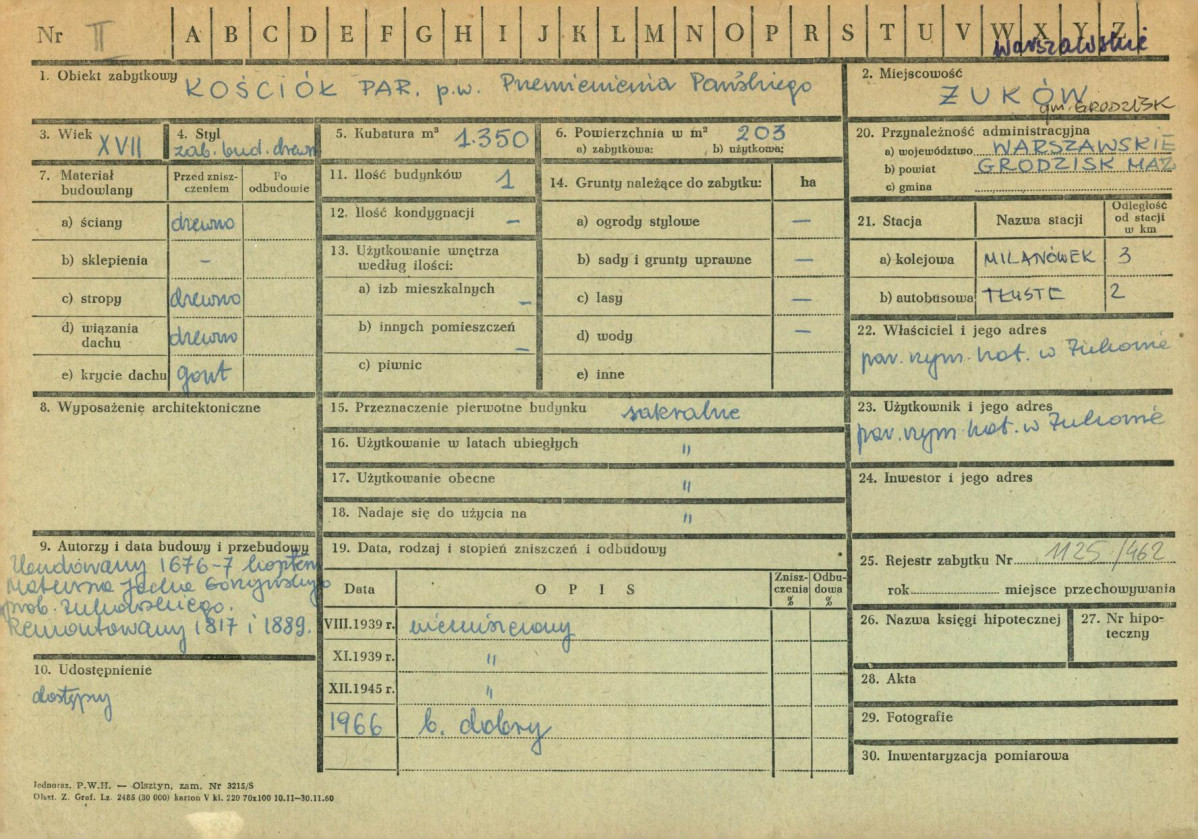 Nr II A B C D E F G H I J K L M N O P R S T U V W X Y Z
warszawskie
1. Obiekt zabytkowy KOŚCIÓŁ PAR. p.w. Przemienienia Pańskiego
2. Miejscowość
ŻUKÓW
gm. GRODZISK
3. Wiek XVII
4. Styl
zab. bud. drewn
5. Kubatura m³ 1.350
6. Powierzchnia w m² 203
a) zabytkowa: b) użytkowa:
7. Materiał budowlany
Przed zniszczeniem
Po odbudowie
a) ściany drewno
b) sklepienia –
c) stropy drewno
d) wiązania dachu drewno
e) krycie dachu gont
8. Wyposażenie architektoniczne
9. Autorzy i data budowy i przebudowy
Zbudowany 1676-7 kosztem
Mateusza Jacka
prob. żukowskiego.
Remontowany 1817 i 1889.
10. Udostępnienie
dostępny
11. Ilość budynków 1
12. Ilość kondygnacji –
13. Użytkowanie wnętrza
według ilości:
a) izb mieszkalnych –
b) innych pomieszczeń –
c) piwnic
14. Grunty należące do zabytku: ha
a) ogrody stylowe –
b) sady i grunty uprawne –
c) lasy –
d) wody –
e) inne
15. Przeznaczenie pierwotne budynku sakralne
16. Użytkowanie w latach ubiegłych "
17. Użytkowanie obecne "
18. Nadaje się do użycia na "
19. Data, rodzaj i stopień zniszczeń i odbudowy
Data OPIS Zniszczenia % Odbudowa %
VIII.1939 r. niezniszczony
XI.1939 r. "
XII.1945 r. "
1966 b. dobry
20. Przynależność administracyjna
a) województwo WARSZAWSKIE
b) powiat GRODZISK MAZ
c) gmina
21. Stacja Nazwa stacji Odległość od stacji w km
a) kolejowa MILANÓWEK 3
b) autobusowa TŁUSTE 2
22. Właściciel i jego adres
par. rzym. kat. w Żukowie
23. Użytkownik i jego adres
par. rzym. kat. w Żukowie
24. Inwestor i jego adres
25. Rejestr zabytku Nr 1125/462
rok miejsce przechowywania
26. Nazwa księgi hipotecznej
27. Nr hipoteczny
28. Akta
29. Fotografie
30. Inwentaryzacja pomiarowa
Jednoraz. P.W.H. — Olsztyn, zam. Nr 3215/S
Olszt. Z. Graf. Lz. 2485 (30 000) karton V kl. 220 70x100 10.11—30.11.60